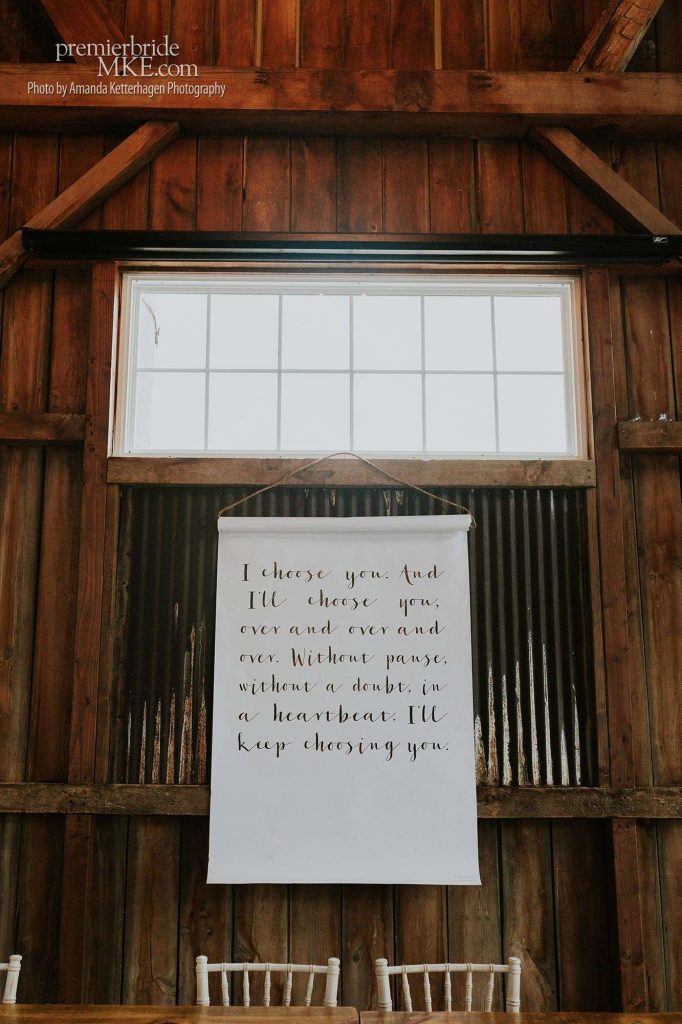 premierbride
MKE.com
Photo by Amanda Ketterhagen Photography
I choose you. And
I'll choose you,
over and over and
over. Without pause,
without a doubt, in
a heartbeat. I'll
keep choosing you.